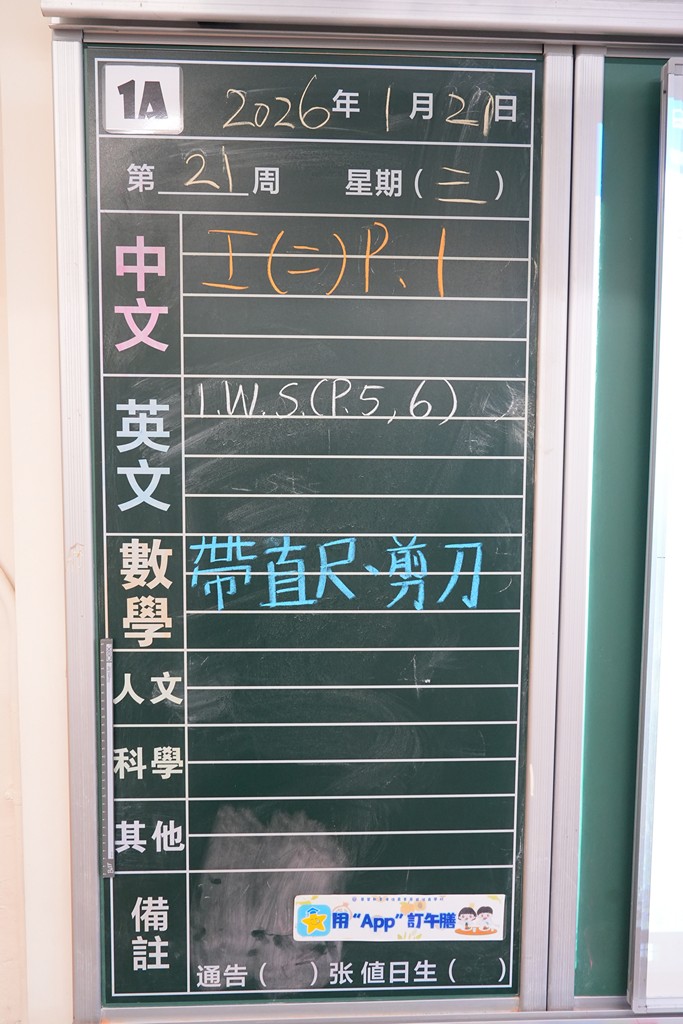 1A
2026年1月21日
第21周 星期(三)
中文
工(二)P.1
英文
1.W.S.(P.5,6)
數學
帶直尺、剪刀
人文
科學
其他
備註
用“App”訂午膳
通告( )张 值日生( )